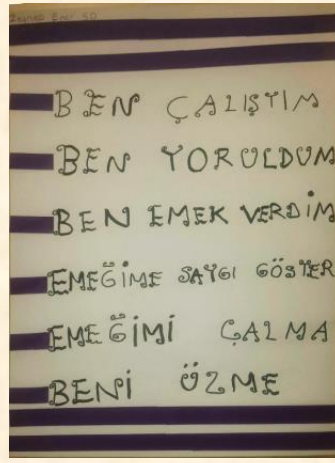 BEN ÇALIŞTIM
BEN YORULDUM
BEN EMEK VERDİM
EMEĞİME SAYGI GÖSTER
EMEĞİMİ ÇALMA
BENİ ÜZME